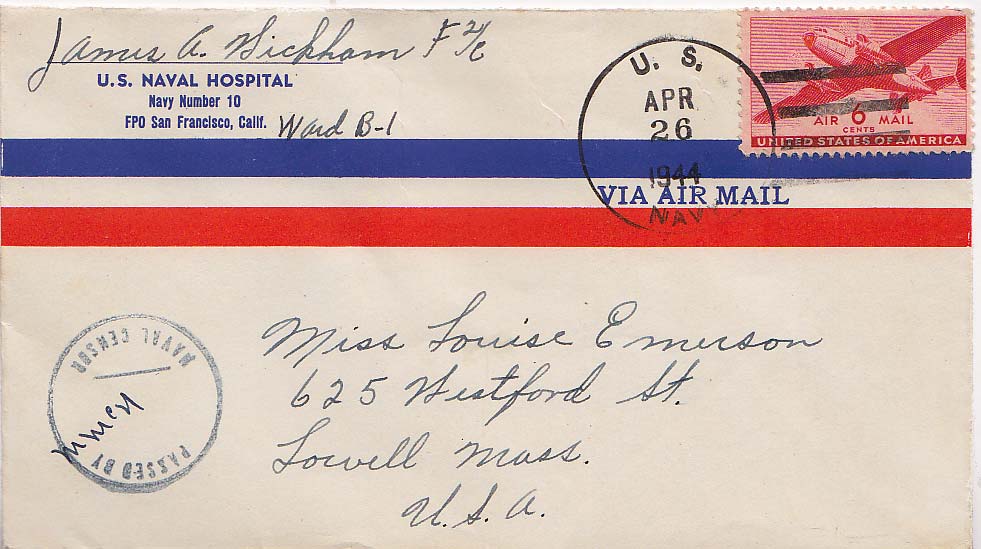 James A. Wickham F 2/c
U.S. NAVAL HOSPITAL
Navy Number 10
FPO San Francisco, Calif. Ward B-1
U. S.
APR
26
1944
NAVY
AIR 6 MAIL
CENTS
UNITED STATES OF AMERICA
VIA AIR MAIL
NAVAL CENSOR
PASSED BY
Miss Louise Emerson
625 Westford St.
Lowell Mass.
U.S.A.